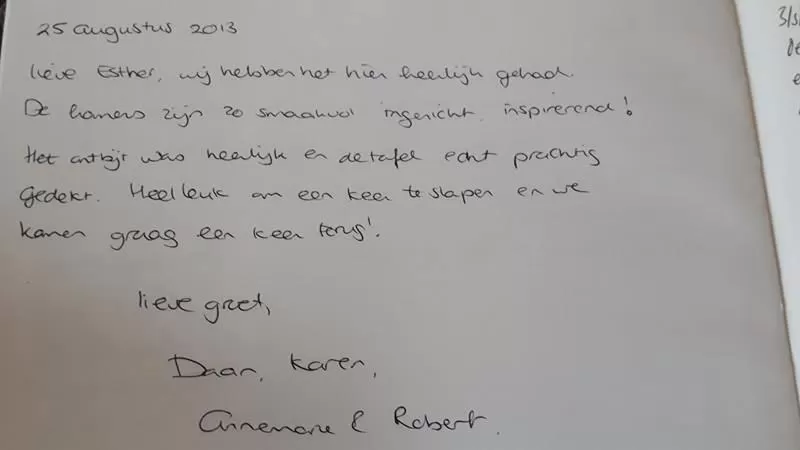 25 augustus 2013
lieve Esther, wij hebben het hier heerlijk gehad.
De kamers zijn zo smaakvol ingericht, inspirerend!
Het ontbijt was heerlijk en de tafel echt prachtig
gedekt. Heel leuk om een keer te slapen en we
komen graag een keer terug!
lieve groet,
Daan, Karen,
Annemarie & Robert.